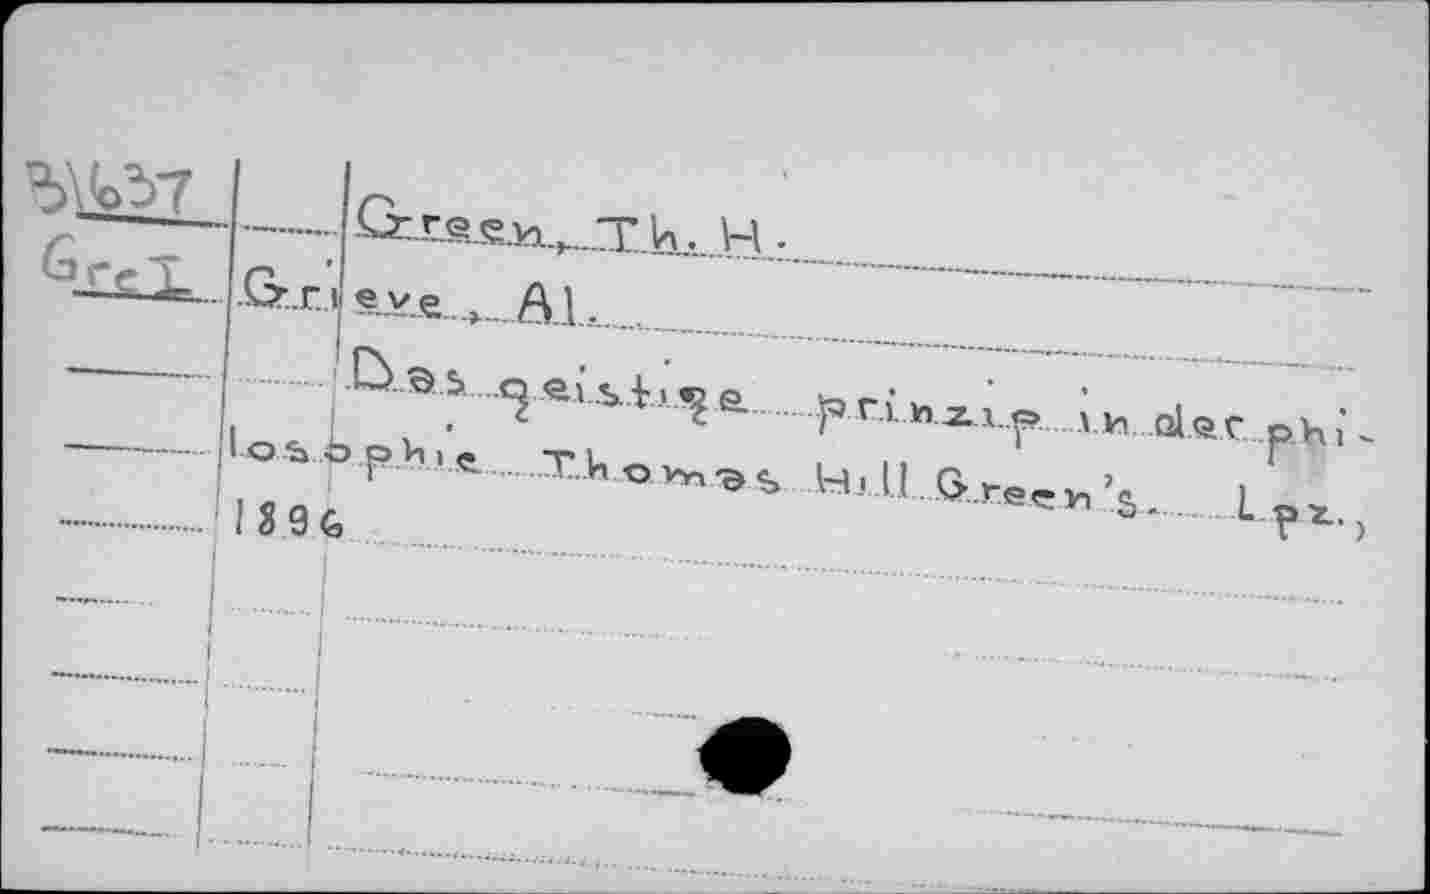 B1637
Green, Th. H.
GreI
Grieve, Al.
Das geistige prinzip in der phi-
losophie Thomas Hill Green's. Lpz.,
1896